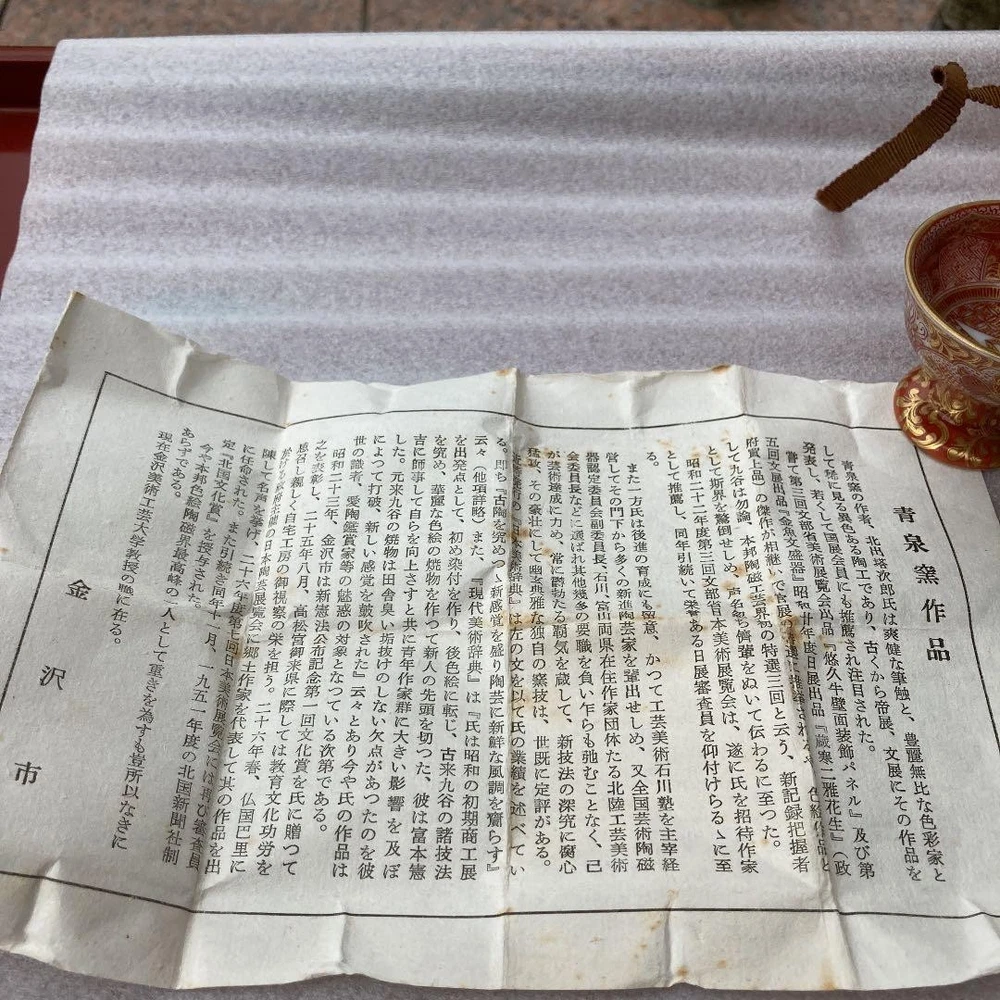 青泉窯作品
青泉窯の作者、北出塔次郎氏は爽健な筆蝕と、豊麗無比な色彩家と
して稀に見る異色ある陶工であり、古くから帝展、文展にその作品を
発表し、若くして国展会員にも推薦され注目された。
嘗て第三回文部省美術展覧会出品『悠久牛壁面装飾パネル』及び第
五回文展出品『金魚文盛器』昭和廿年度日展出品『蔵寒二雅花生』（政
府買上品）の傑作が相継いで官展の特選
して九谷は勿論、本邦陶磁工芸界初の特選三回と云う、新記録把握者
として斯界を驚倒せしめ、声名頓ち儕輩をぬいて伝わるに至つた。
昭和二十二年度第三回文部省日本美術展覧会は、遂に氏を招待作家
として推薦し、同年引続いて栄誉ある日展審査員を仰付けらるゝに至
る。
また一方氏は後進の育成にも留意、かつて工芸美術石川塾を主宰経
営してその門下から多くの新進陶芸家を輩出せしめ、又全国芸術陶磁
器認定委員会副委員長、石川、富山両県在住作家団体たる北陸工芸美術
会委員長などに選ばれ其他幾多の要職を負い乍らも弛むことなく、己
が芸術達成に力め、常に欝勃たる覇気を蔵して、新技法の深究に腐心
猛攻、その豪壮にして幽玄典雅な独自の窯技は、世既に定評がある。
は左の文を以て氏の業績を述べてい
る。即ち『古陶を究めつゝ新感覚を盛り陶芸に新鮮な風調を齎らす』
云々（他項詳略）また、『現代美術辞典』は『氏は昭和の初期商工展
を出発点として、初め染付を作り、後色絵に転じ、古来九谷の諸技法
を究め、華麗な色絵の焼物を作つて新人の先頭を切つた、彼は富本憲
吉に師事して自らを向上さすと共に青年作家群に大きい影響を及ぼ
した。元来九谷の焼物は田舎臭い垢抜けのしない欠点があつたのを彼
によつて打破、新しい感覚を鼓吹された』云々とあり今や氏の作品は
世の識者、愛陶鑑賞家等の魅惑の対象となつている次第である。
昭和二十三年、金沢市は新憲法公布記念第一回文化賞を氏に贈つて
之を表彰し、二十五年八月、高松宮御来県に際しては教育文化功労を
思召し親しく自宅工房の御視察の栄を担う。二十六年春、仏国巴里に
於ける政府主催の日本陶芸展覧会に郷土作家を代表して其の作品を出
陳して名声を挙げ、二十六年度第七回日本美術展覧会には再び審査員
に任命された。また引続き同年一月、一九五一年度の北国新聞社制
定『北国文化賞』を授与された。
今や本邦色絵陶磁界最高峰の一人として重きを為すも豈所以なきに
あらずである。
現在金沢美術工芸大学教授の職に在る。
金沢市